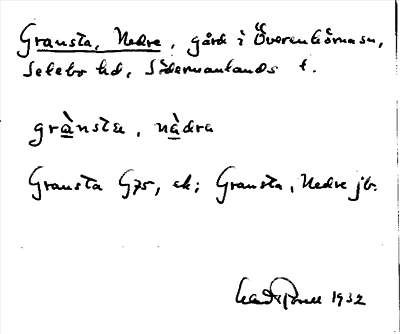 Gransta, Nedre, gård i Överenhörna sn,
Selebo hd, Södermanlands l.
grànsta, nàdra
Gransta G75, ek; Gransta, Nedre jb.
1932